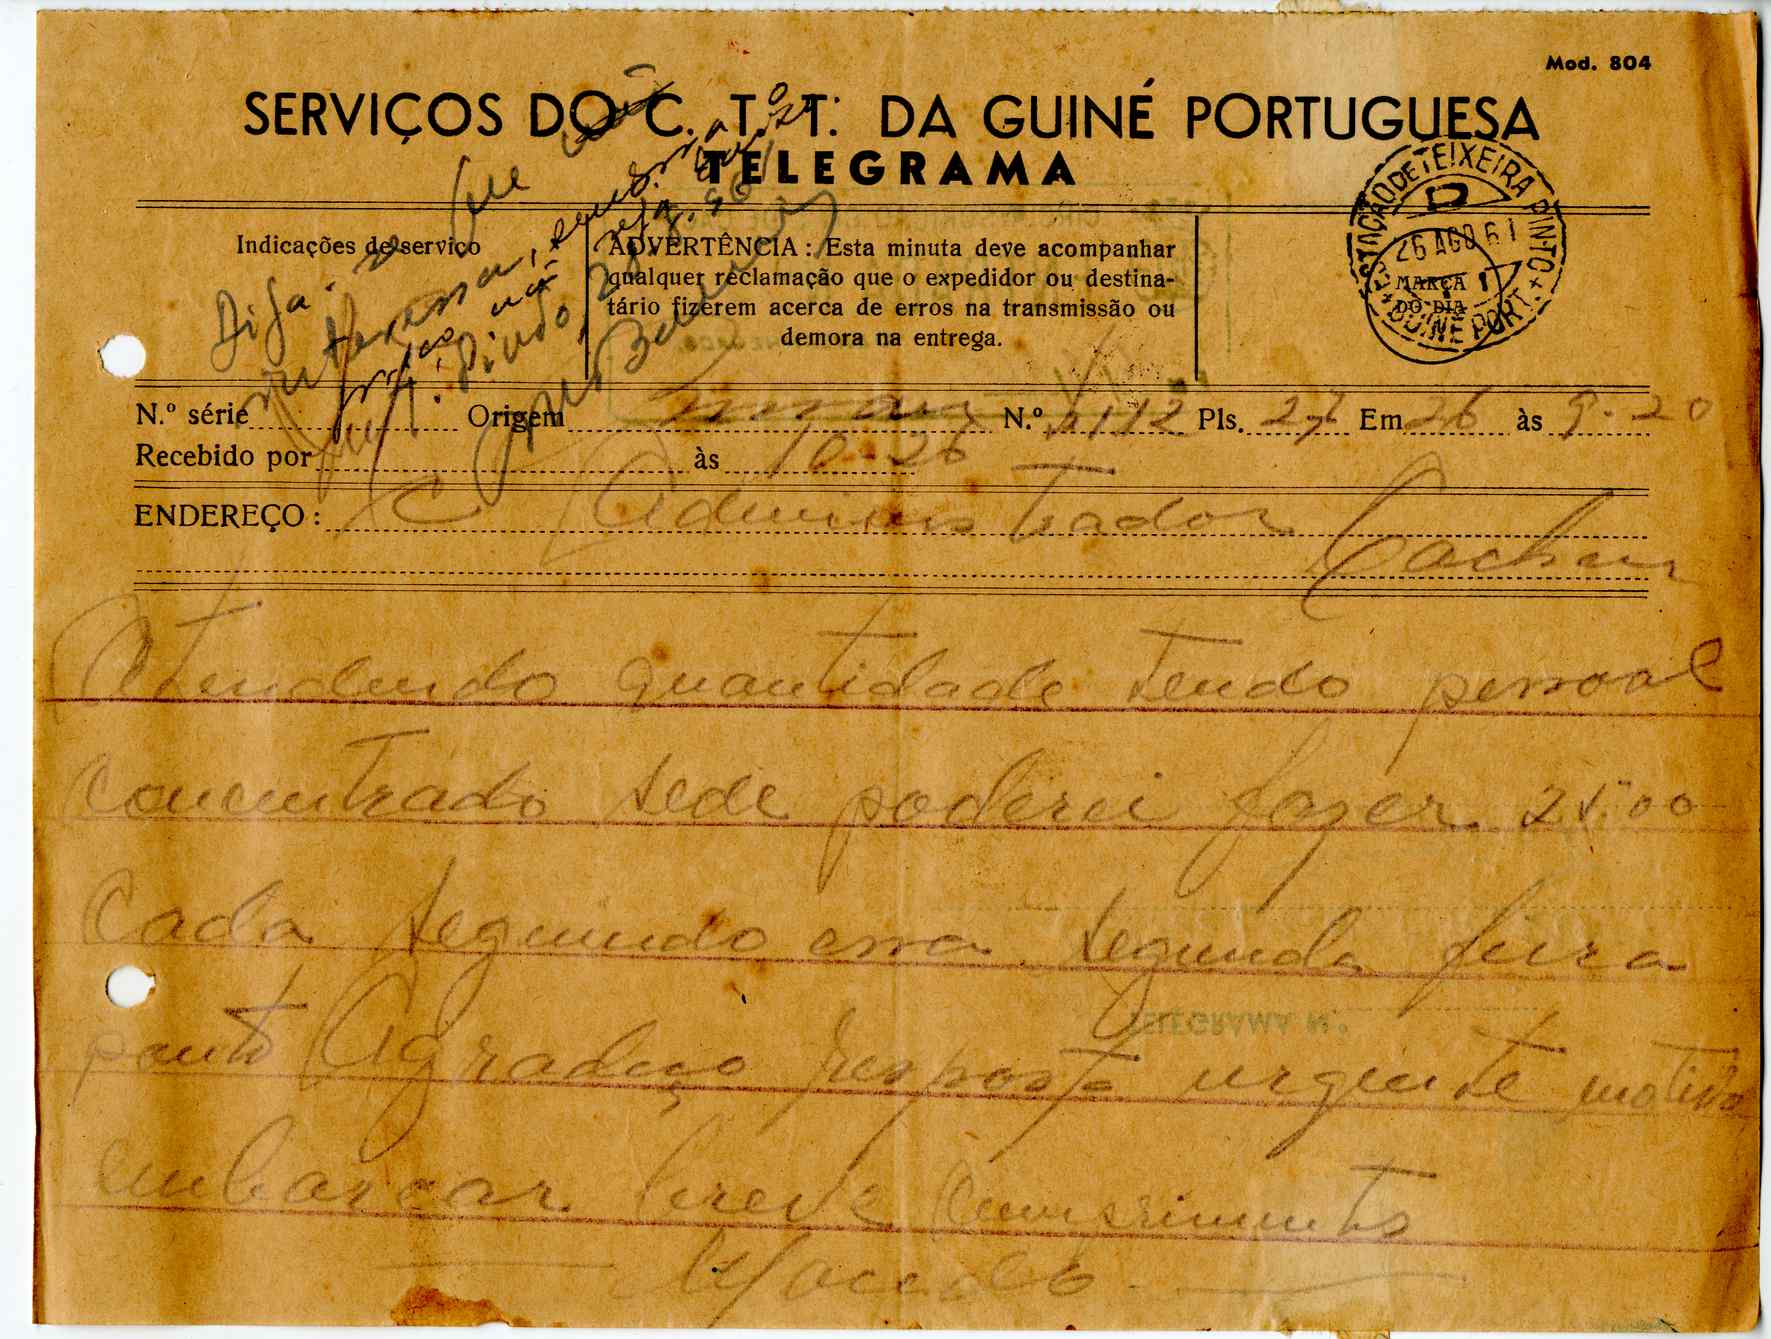 Mod. 804
SERVIÇOS DO C. T. T. DA GUINÉ PORTUGUESA
TELEGRAMA
Indicações de serviço
ADVERTÊNCIA : Esta minuta deve acompanhar
qualquer reclamação que o expedidor ou destina-
tário fizerem acerca de erros na transmissão ou
demora na entrega.
ESTAÇÃO DE TEIXEIRA PINTO
26 AGO 61
MARCA
DO DIA
GUINÉ PORT.
Diga-se que
interessa
N.º série Origem N.º 2112 Pls. 27 Em 26 às 9-20
Recebido por às 10-26
ENDEREÇO : Administrador
Cacheu
Atendendo quantidade tendo pessoal
concentrado sede poderei fazer 25:00
Cada seguindo essa segunda feira
ponto Agradeço resposta urgente motivo
embarcar breve Cumprimentos
Macedo
TELEGRAMA N.º